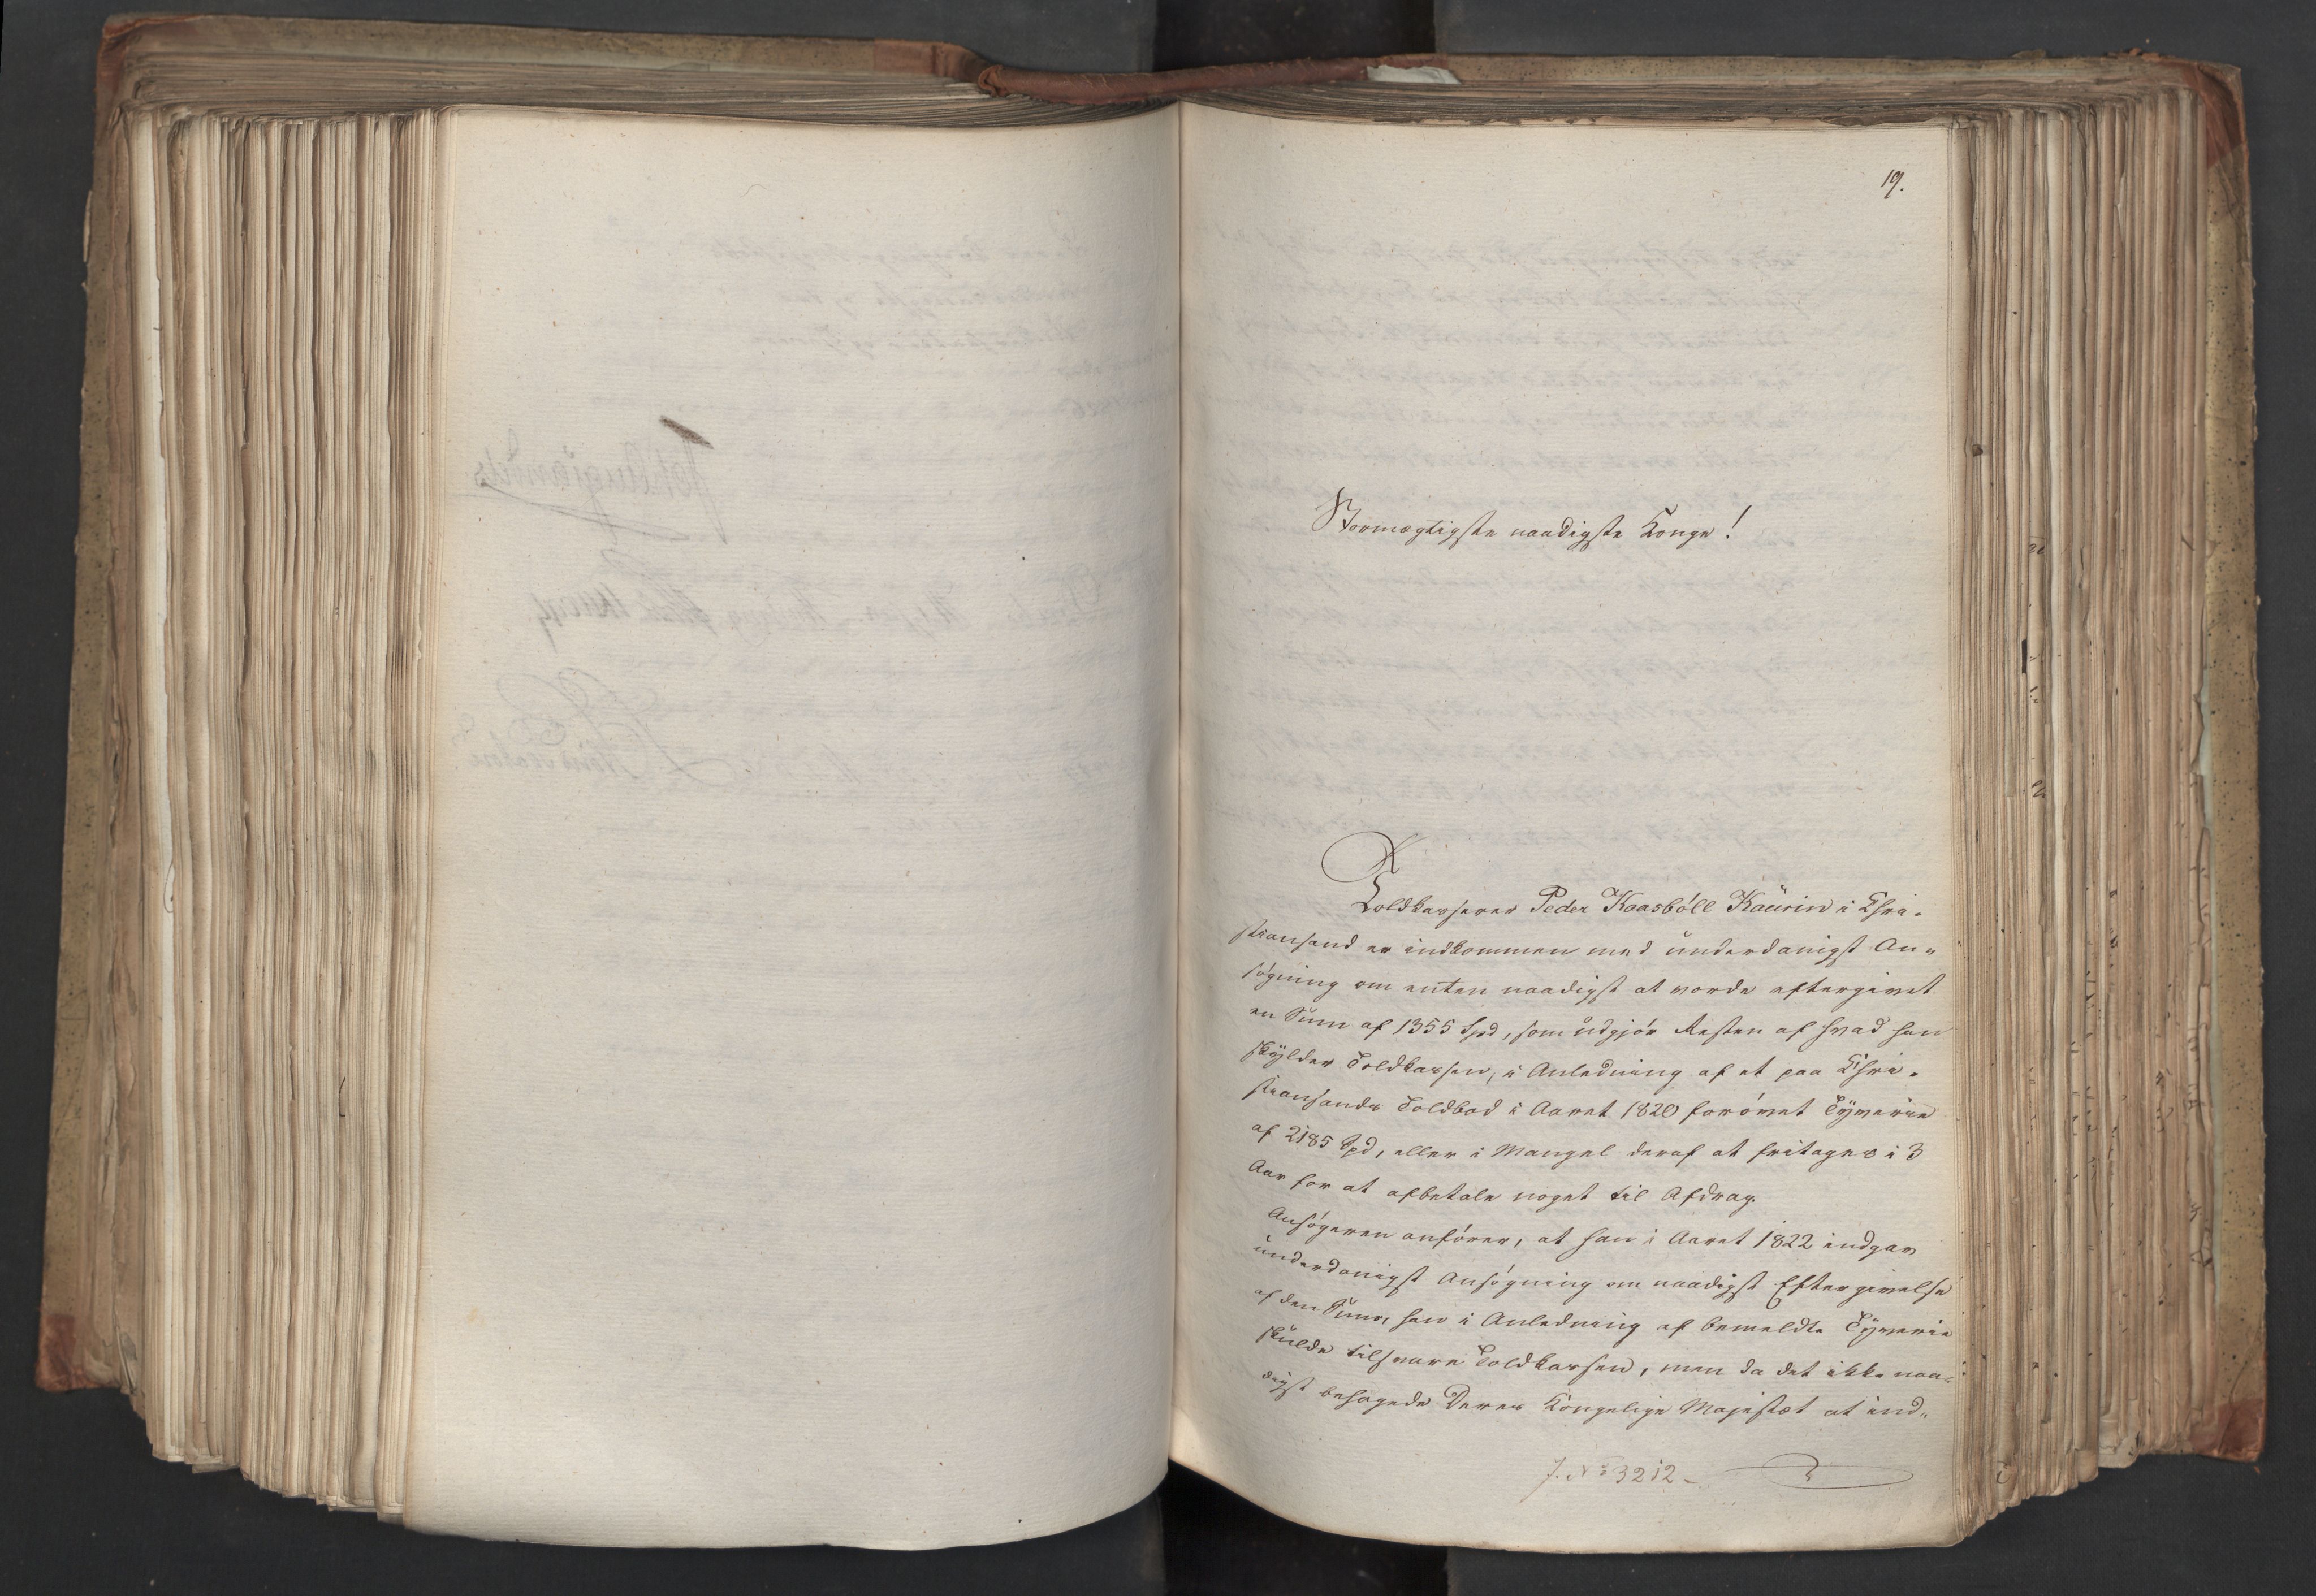 19.
Stormægtigste naadigste Konge!
Toldkasserer Peder Kaasböll Kaürin i Chri-
stiansand er indkommen med ünderdanigst An-
søgning om enten naadigst at vorde eftergivet
en Sum af 1355 Spd, som üdgjör Resten af hvad han
skÿlder Toldkassen, i Anledning af et paa Chri-
stiansands Toldbod i Aaret 1820 forövet Tÿverie
af 2185 Spd, eller i Mangel deraf at fritages i 3
Aar for at afbetale noget til Afdrag.
Ansøgeren anfører, at han i Aaret 1822 indgav
ünderdanigst Ansøgning om naadigst Eftergivelse
af den Sum, han i Anledning af bemeldte Tÿverie
skülde tilsvare Toldkassen, men da det ikke naa-
digst behagede Deres Kongelige Majestæt at ind-
J. No 3212